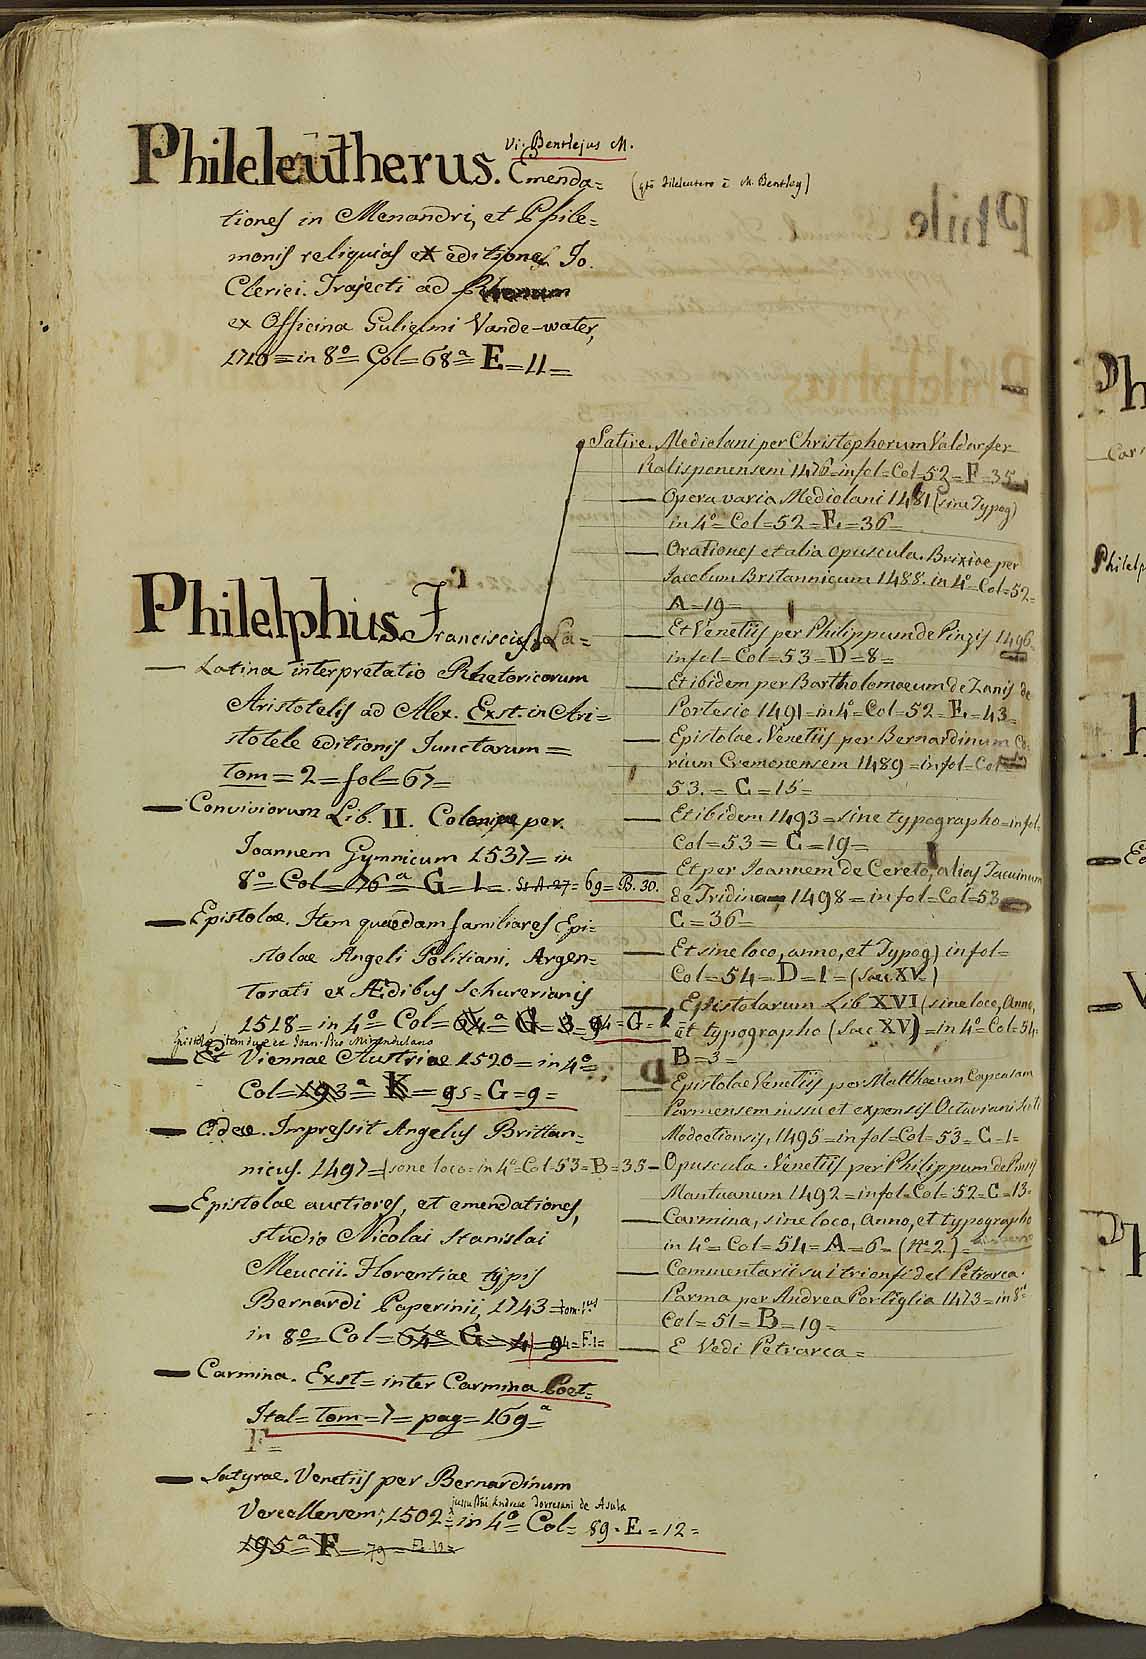 Phileleutherus. Vi: Bentlejus M.
Emenda=
(qto Fileleutero è M. Bentley)
tiones in Menandri, et Phile=
monis reliquias ex editione Jo.
Clerici. Trajecti ad Rhenum
ex Officina Gulielmi Vande-water,
1710=in 8º= Col=68ª= E=11=
Philelphus. Franciscus. La=
— Latina interpretatio Rhetoricorum
Aristotelis ad Alex. Exst. in Ari=
stotele editionis Junctarum=
tom=2=fol=67=
— Conviviorum Lib. II. Coloniae per.
Joannem Gymnicum 1537= in
8º= Col=76ª= G=1=. 69=B.30.
— Epistolae. Item quaedam familiares Epi=
stolae Angeli Politiani. Argen=
torati ex Ædibus Schurerianis
1518=in 4º= Col=64ª= G=3= 94=G=1
— Et Viennae Austriae 1520=in 4º=
Col=193ª= K=95=G=9=
— Odae. Impressit Angelus Brittan=
nicus. 1497=(sine loco=in 4º=Col=53=B=35
— Epistolae auctiores, et emendationes,
studio Nicolai Stanislai
Meuccii. Florentiae typis
Bernardi Paperinii, 1743=tom. 1us
in 8º= Col=64ª G=4 94=F.1=
— Carmina. Exst= inter Carmina Poet=
Ital=tom=7=pag=169=ª
F=
— Satyrae. Venetiis per Bernardinum
jussu Dñi Andreae Torresani de Asula
Vercellensem; 1502=in 4º= Col= 89=E=12=
195ª= F=79=E.12=
Satire. Mediolani per Christophorum Valdarfer
Ratisponensem 1476=in fol=Col=52=F=35
— Opera varia Mediolani 1481 (sine Typog)
in 4º=Col=52=F=36=
— Orationes et alia opuscula. Brixiae per
Jacobum Britannicum 1488. in 4º=Col=52=
A=19=
— Et Venetiis per Philippum de Pinzis 1496
in fol=Col=53=D=8=
— Et ibidem per Bartholomaeum de Zanis de
Portesio 1491=in 4º=Col=52=F=43=
— Epistolae. Venetiis per Bernardinum Co
rium Cremonensem 1489=in fol=Col
53.=C=15=
— Et ibidem 1493=sine typographo=in fol=
Col=53=C=19=
— Et per Joannem de Cereto, alias Tacuinum
de Tridino 1498=in fol=Col=53
C=36=
— Et sine loco, anno, et Typog) in fol=
Col=54=D=1=(Saec. XV.)
— Epistolarum Lib XVI (sine loco, Anno,
et typographo (Saec XV)=in 4º=Col=54=
B=3=
— Epistolae Venetiis per Matthaeum Capcasam
Parmensem iussu et expensis Octaviani Scoti
Modoetiensis, 1495=in fol=Col=53=C=1=
— Opuscula. Venetiis per Philippum de Pinsis
Mantuanum 1492=in fol=Col=52=C=13=
— Carmina, sine loco, Anno, et typographo
in 4º=Col=54=A=6=(Nº2)=
— Commentarii sui trionfi del Petrarca.
Parma per Andrea Portiglia 1473=in 8º=
Col=51=B=19=
— E Vedi Petrarca=